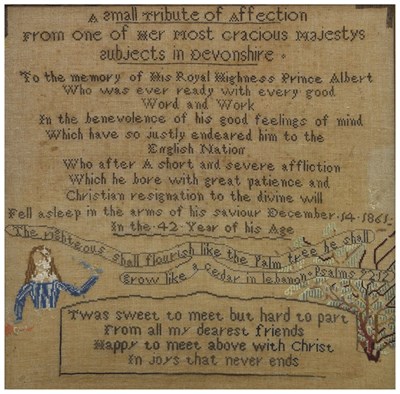 A small Tribute of Affection
From one of Her Most Gracious Majestys
subjects in Devonshire.
To the memory of His Royal Highness Prince Albert
Who was ever ready with every good
Word and Work
In the benevolence of his good feelings of mind
Which have so justly endeared him to the
English Nation
Who after A short and severe affliction
Which he bore with great patience and
Christian resignation to the divine will
Fell asleep in the arms of his saviour December 14 1861
In the 42 Year of his Age
The righteous shall flourish like the Palm tree he shall
Grow like a Cedar in lebanon Psalms
Twas sweet to meet but hard to part
From all my dearest friends
Happy to meet above with Christ
In joys that never ends